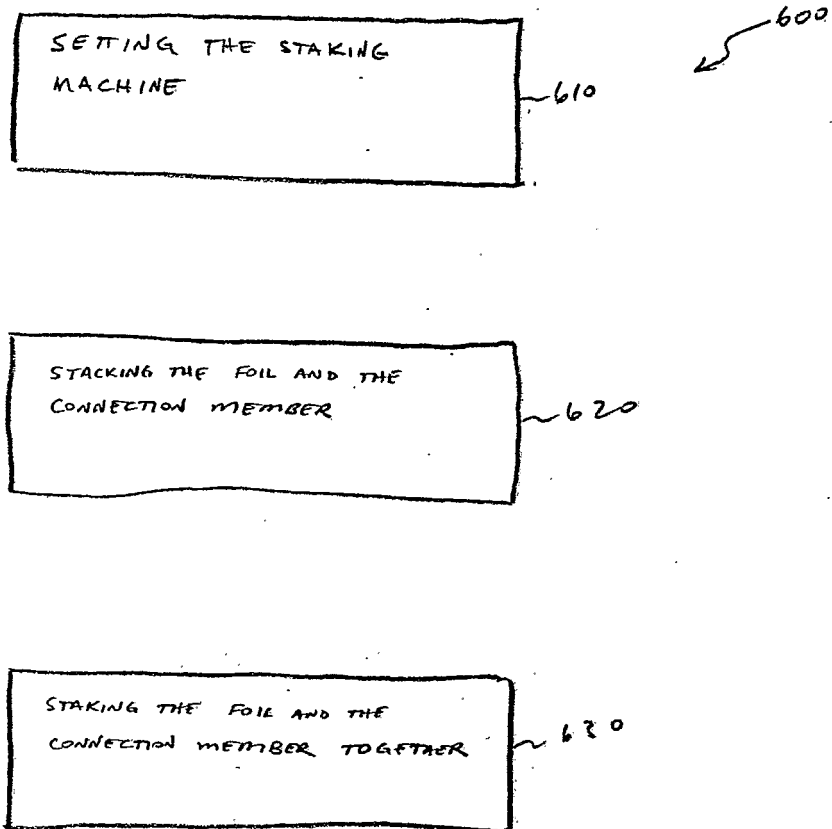 600
SETTING THE STAKING
MACHINE
610
STACKING THE FOIL AND THE
CONNECTION MEMBER
620
STAKING THE FOIL AND THE
CONNECTION MEMBER TOGETHER
630